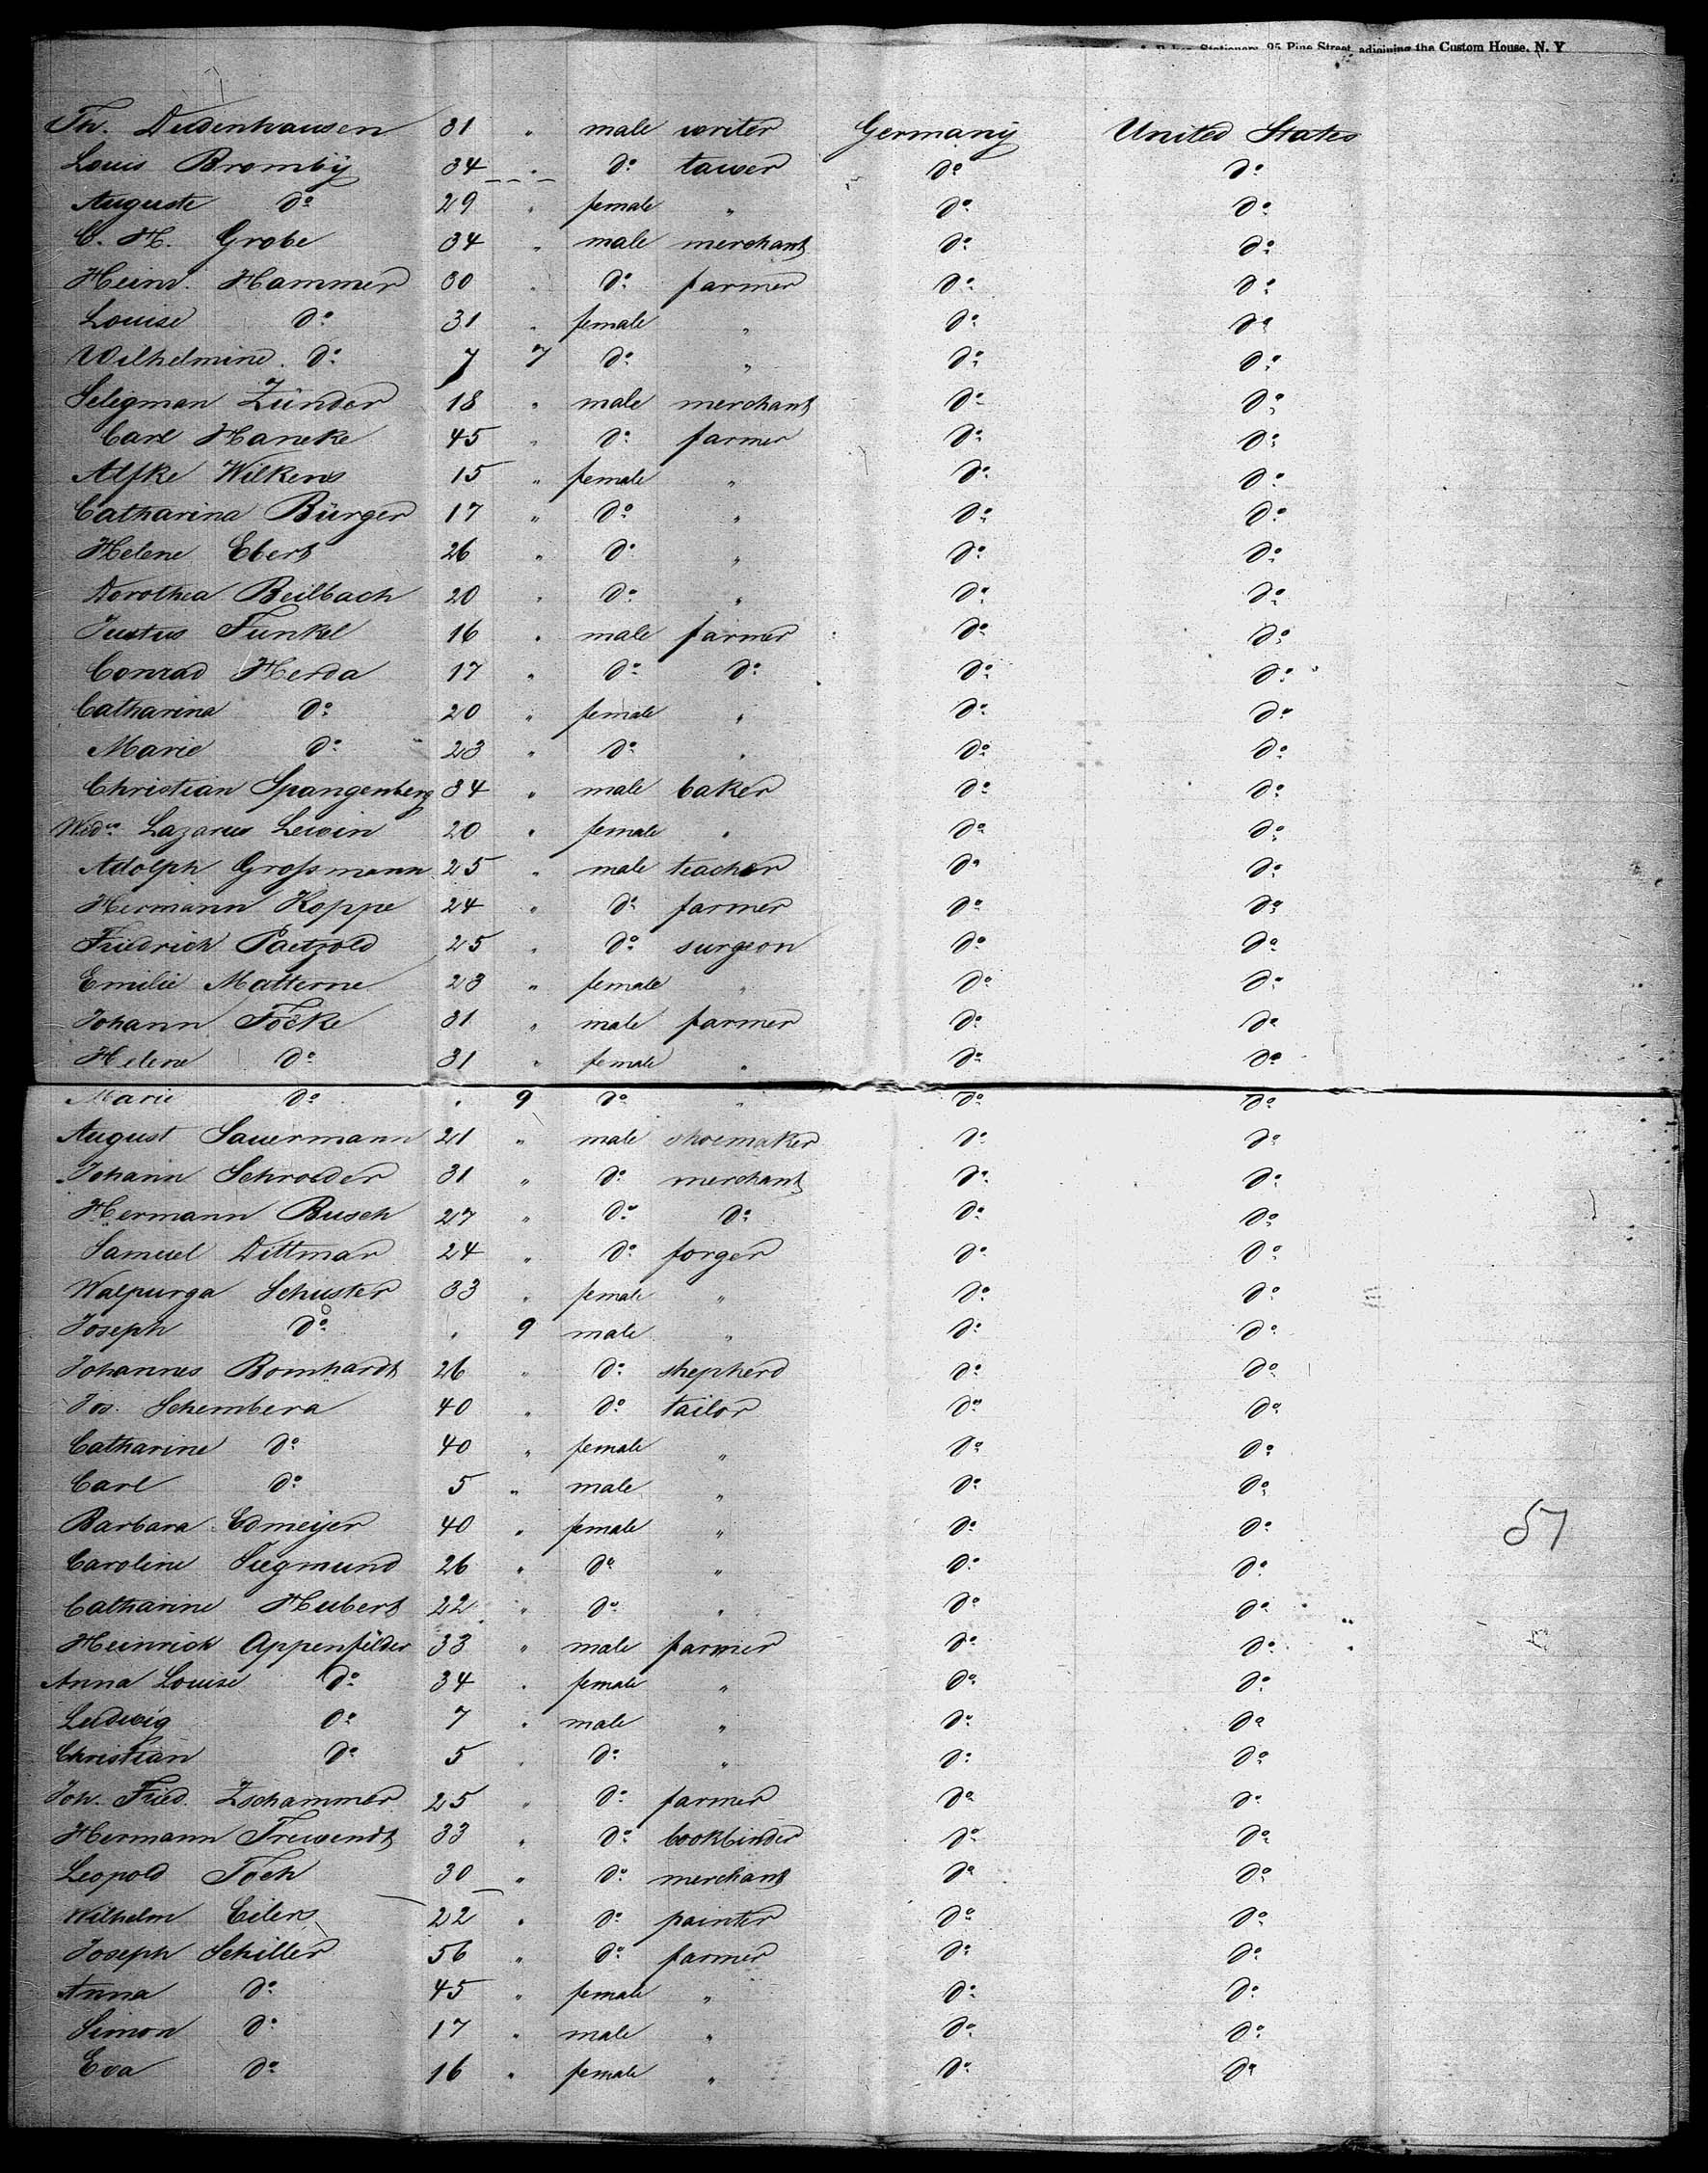 Stationers, 95 Pine Street, adjoining the Custom House, N. Y
Th. Dudenhausen 31 " male writer Germany United States
Louis Bromby 34 " do tawer do do
Auguste do 29 " female " do do
C. H. Grobe 34 " male merchant do do
Heinr. Hammer 30 " do farmer do do
Louise do 31 " female " do do
Wilhelmine do 7 7 do " do do
Seligman Zünder 18 " male merchant do do
Carl Haneke 45 " do farmer do do
Alfke Wilkens 15 " female " do do
Catharina Bürger 17 " do " do do
Helene Ebert 26 " do " do do
Dorothea Beilbach 20 " do " do do
Justus Funkel 16 " male farmer do do
Conrad Herda 17 " do do do do
Catharina do 20 " female " do do
Marie do 23 " do " do do
Christian Spangenberg 34 " male baker do do
Wido Lazarus Lewin 20 " female " do do
Adolph Grossmann 25 " male teacher do do
Hermann Koppe 24 " do farmer do do
Friedrich Paetzold 25 " do surgeon do do
Emilie Matterne 23 " female " do do
Johann Focke 31 " male farmer do do
Helene do 31 " female " do do
Marie do " 9 do " do do
August Sauermann 21 " male shoemaker do do
Johann Schroeder 31 " do merchant do do
Hermann Busch 27 " do do do do
Samuel Dittmar 24 " do forger do do
Walpurga Schuster 33 " female " do do
Joseph do " 9 male " do do
Johannes Bomhardt 26 " do shepherd do do
Jos. Schembera 40 " do tailor do do
Catharine do 40 " female " do do
Carl do 5 " male " do do
Barbara Edmeijer 40 " female " do do 57
Caroline Siegmund 26 " do " do do
Catharine Hubert 22 " do " do do
Heinrich Appenfelder 33 " male farmer do do
Anna Louise do 34 " female " do do
Ludwig do 7 " male " do do
Christian do 5 " do " do do
Joh. Fried. Zschammer 25 " do farmer do do
Hermann Trewendt 33 " do bookbinder do do
Leopold Toch 30 " do merchant do do
Wilhelm Eilers 22 " do painter do do
Joseph Schiller 56 " do farmer do do
Anna do 45 " female " do do
Simon do 17 " male " do do
Eva do 16 " female " do do